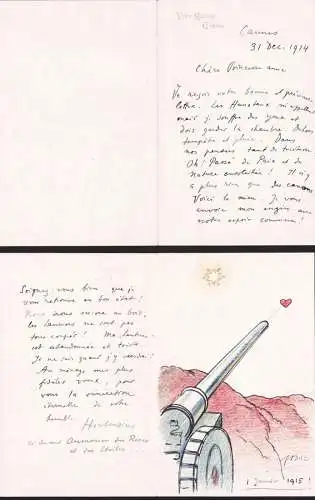 Cannes
31 Dec. 1914
Chère Princesse amie
Je reçois votre bonne et précieuse
lettre. Les Hanotaux m'appellent
mais je souffre des yeux et
dois garder la chambre. Dehors
tempête et pluie. Dans
nos pensées tant de tristesse
Oh! Passé de Paix et de
Nature ensoleillée! Il n'y
a plus rien que des canons
Voici le mien. Je vous
envoie mon
notre espoir commun!
Soignez-vous bien que je
vous retrouve en bon état!
nous encore au bois,
les lauriers ne sont pas
tous coupés! Ma
est abandonnée et triste.
Je ne sais quand j'y reviendrai
Au ménage mes plus
fidèles vœux, pour
vous la
de votre
humble
Hortensius
ci-devant des Roses
et des Étoiles
1 Janvier 1915!